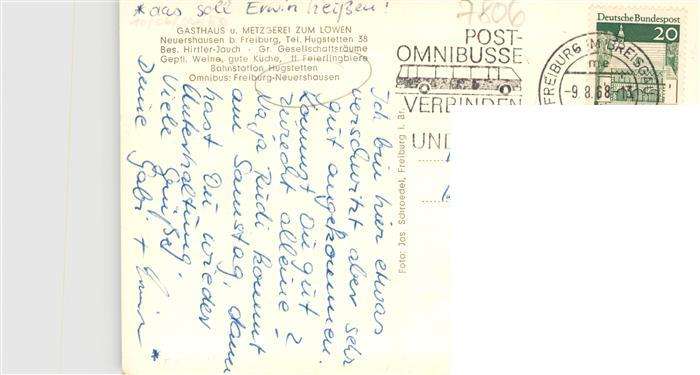 *das soll Erwin heißen!
7806
GASTHAUS u. METZGEREI ZUM LÖWEN
Neuershausen b. Freiburg, Tel. Hugstetten 38
Bes. Hirtler-Jauch - Gr. Gesellschaftsräume
Gepfl. Weine, gute Küche, ff. Feierlingbiere
Bahnstation Hugstetten
Omnibus: Freiburg-Neuershausen
Ich bin hier etwas
verschwitzt aber sehr
gut angekommen.
Kommst Du gut
zurecht alleine?
Naja Rudi kommt
am Samstag, dann
hast Du wieder
Unterhaltung.
Viele Grüße!
Deine Gabi +
*
Foto: Jos. Schroedel, Freiburg i. Br.
POST-
OMNIBUSSE
VERBINDEN
UND
FREIBURG BREISGAU
me
-9.8.68.-13
Deutsche Bundespost
20